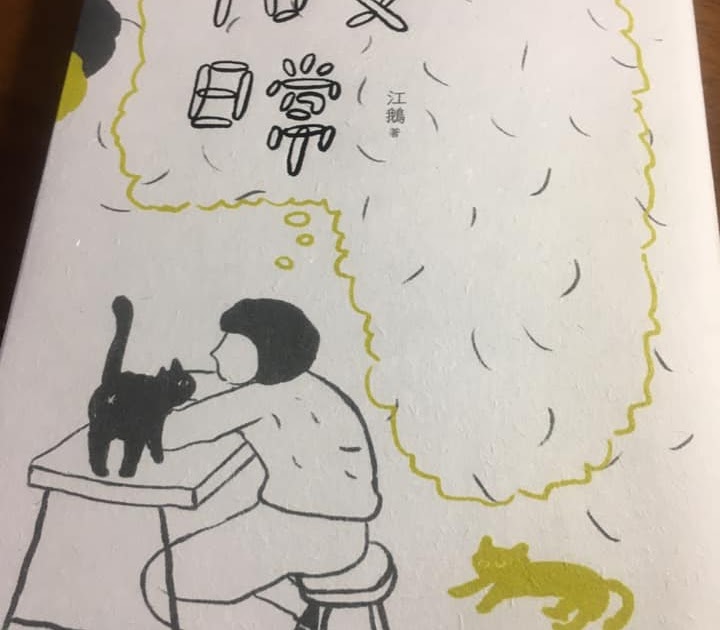 日常
江鵝
著